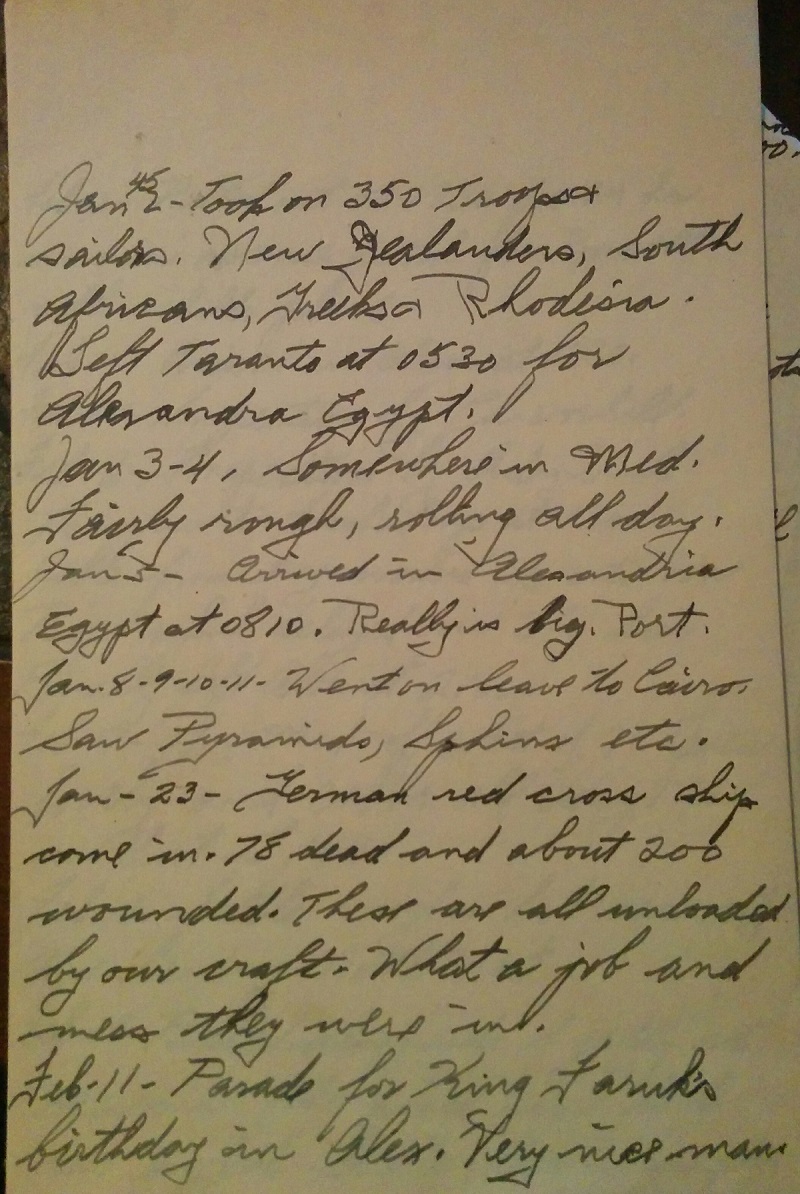 Jan 45 2 - Took on 350 Troops &
sailors. New Zealanders, South
Africans, Greeks & Rhodesia.
Left Taranto at 0530 for
Alexandra Egypt.
Jan 3-4, Somewhere in Med.
Fairly rough, rolling all day.
Jan 5 - Arrived in Alexandria
Egypt at 0810. Really is big. Port.
Jan. 8-9-10-11- Went on leave to Cairo.
Saw Pyramids, Sphinx etc.
Jan - 23 - German red cross ship
come in. 78 dead and about 200
wounded. These are all unloaded
by our craft. What a job and
mess they were in.
Feb-11- Parade for King Faruk's
birthday in Alex. Very nice man.